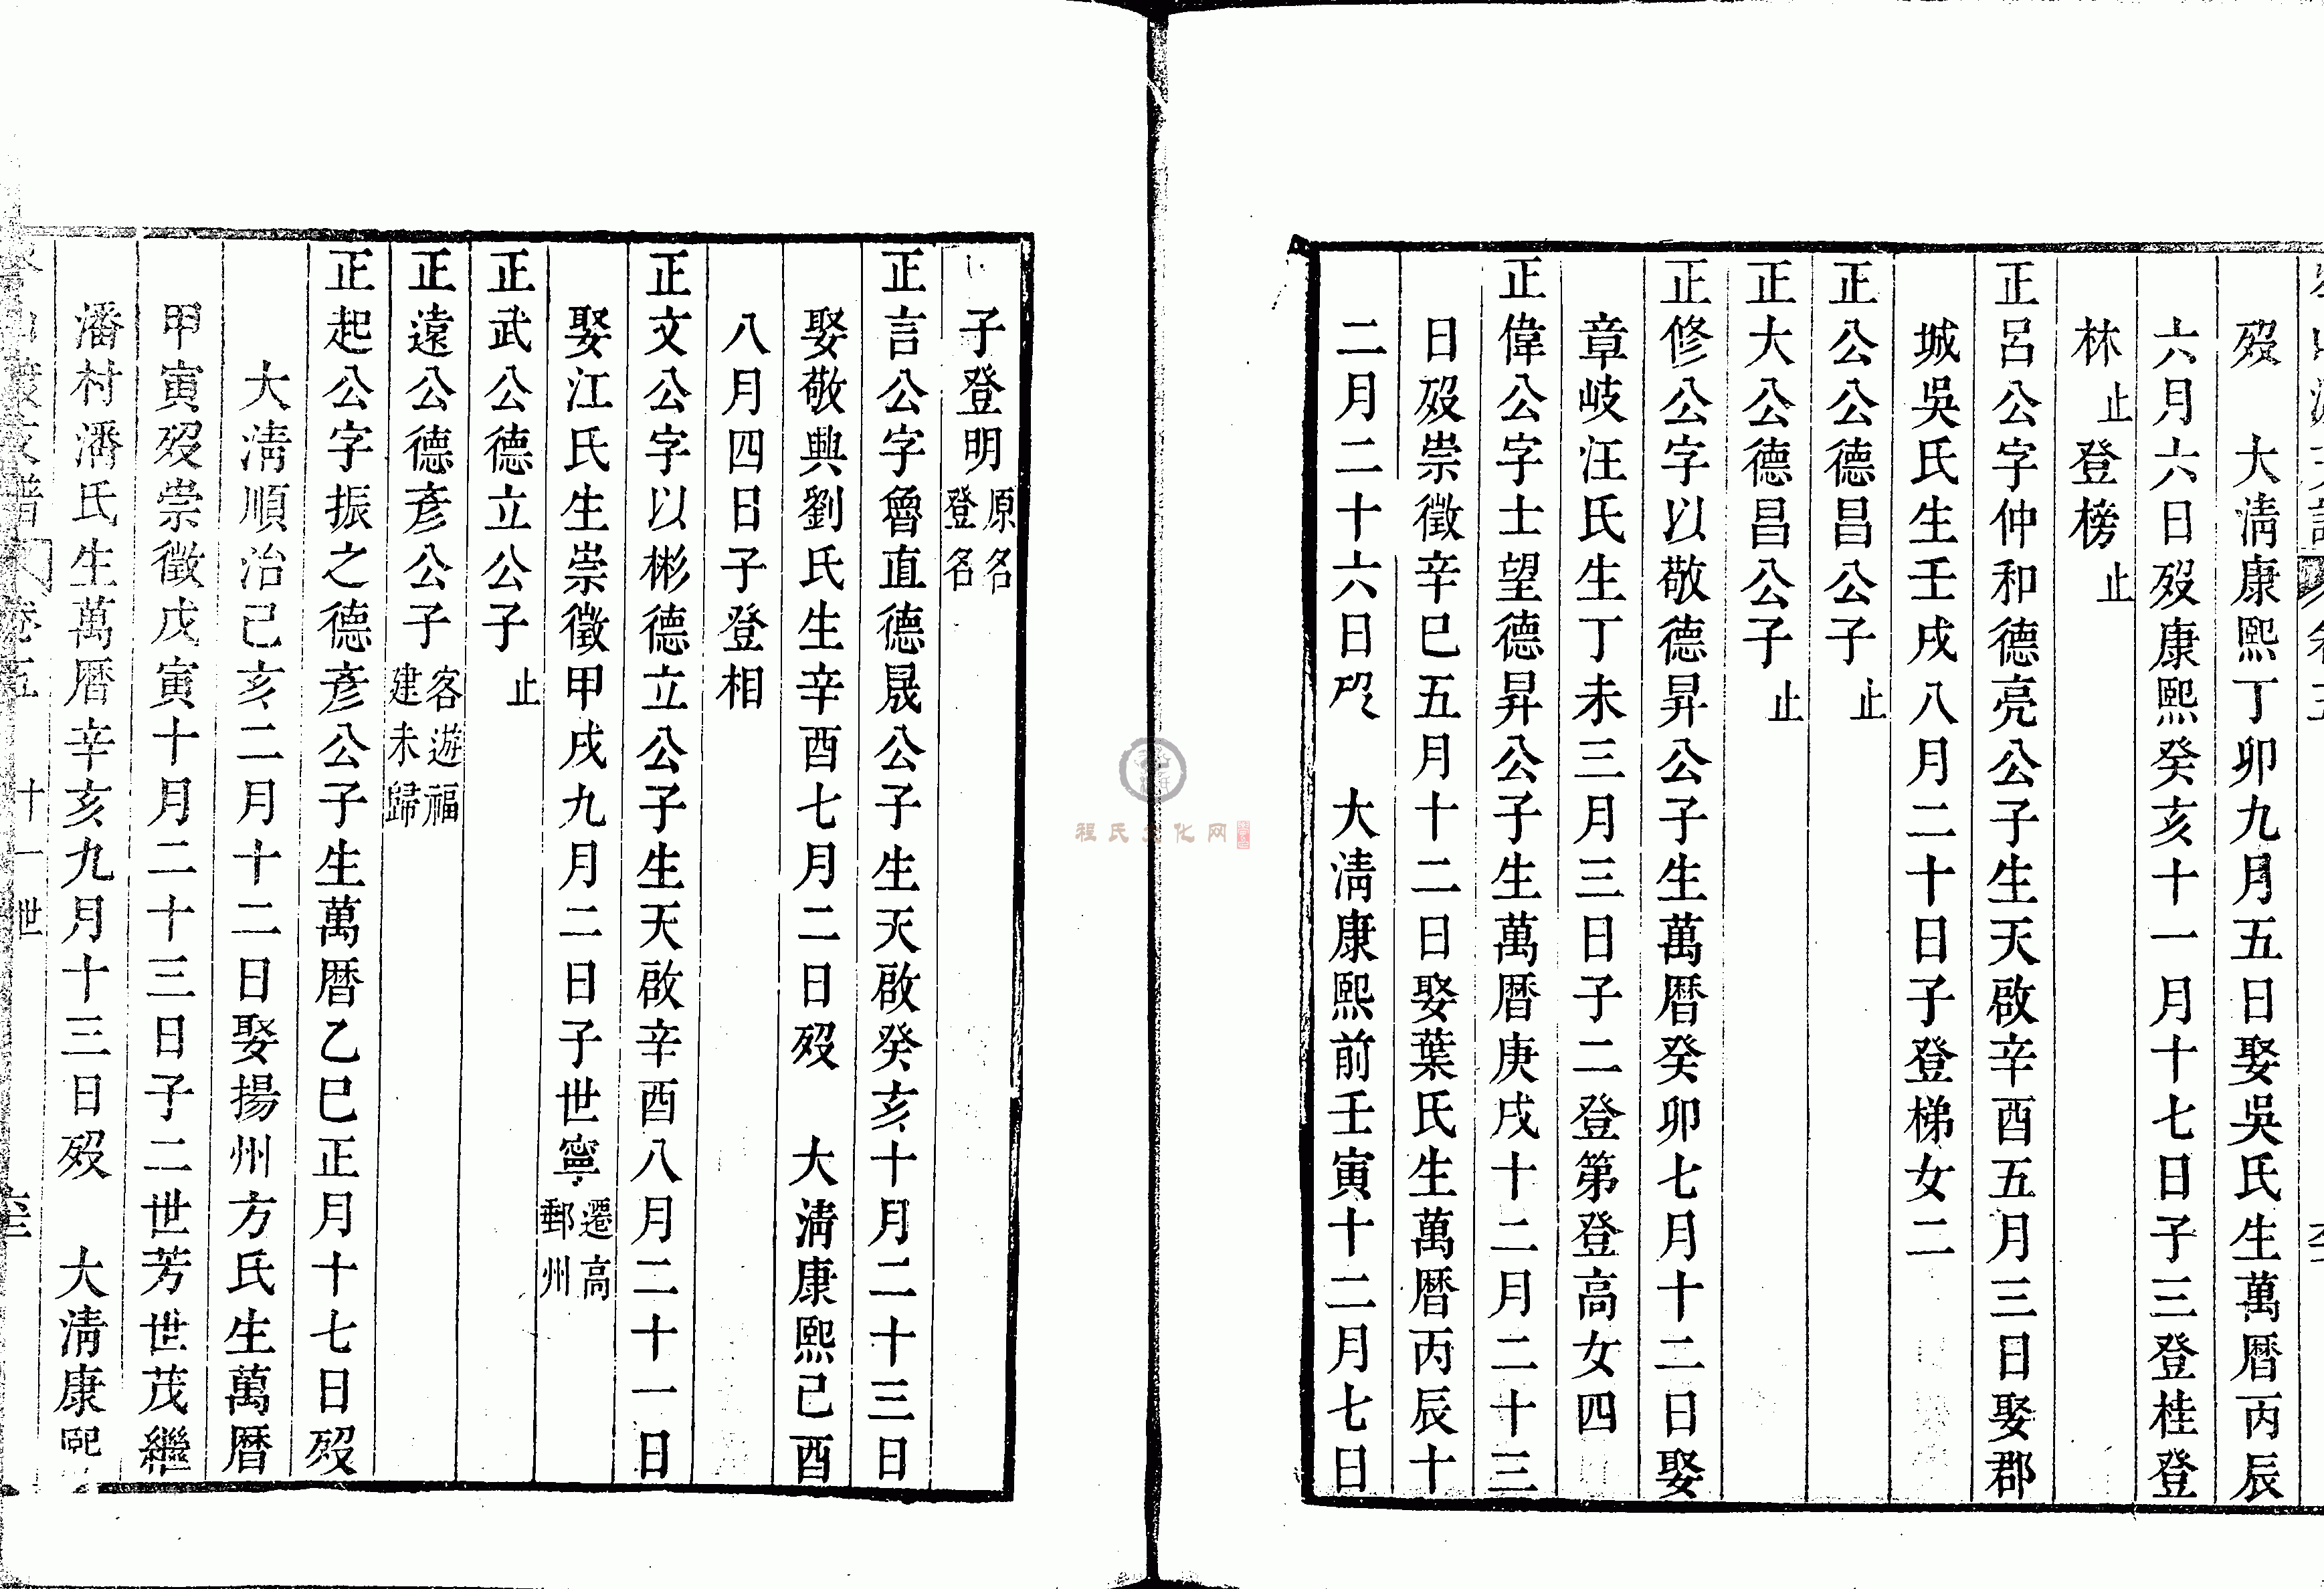 歿　大淸康熙丁卯九月五日娶吳氏生萬曆丙辰
六月六日歿康熙癸亥十一月十七日子三登桂登
林止登榜止
正呂公字仲和德亮公子生天啟辛酉五月三日娶郡
城吳氏生壬戌八月二十日子登梯女二
正公公德昌公子止
正大公德昌公子止
正修公字以敬德昇公子生萬曆癸卯七月十二日娶
章岐汪氏生丁未三月三日子二登第登高女四
正偉公字士望德昇公子生萬曆庚戌十二月二十三
日歿崇徵辛巳五月十二日娶葉氏生萬曆丙辰十
二月二十六日歿　大淸康熙前壬寅十二月七日
子登明原名登名
正言公字魯直德晟公子生天啟癸亥十月二十三日
娶敬興劉氏生辛酉七月二日歿　大淸康熙己酉
八月四日子登相
正文公字以彬德立公子生天啟辛酉八月二十一日
娶江氏生崇徵甲戌九月二日子世寧遷高郵州
正武公德立公子止
正遠公德彥公子客遊福建未歸
正起公字振之德彥公子生萬曆乙巳正月十七日歿
大淸順治己亥二月十二日娶揚州方氏生萬曆
甲寅歿崇徵戊寅十月二十三日子二世芳世茂繼
潘村潘氏生萬曆辛亥九月十三日歿　大淸康熙
支譜 卷五 十一世
程氏文化网